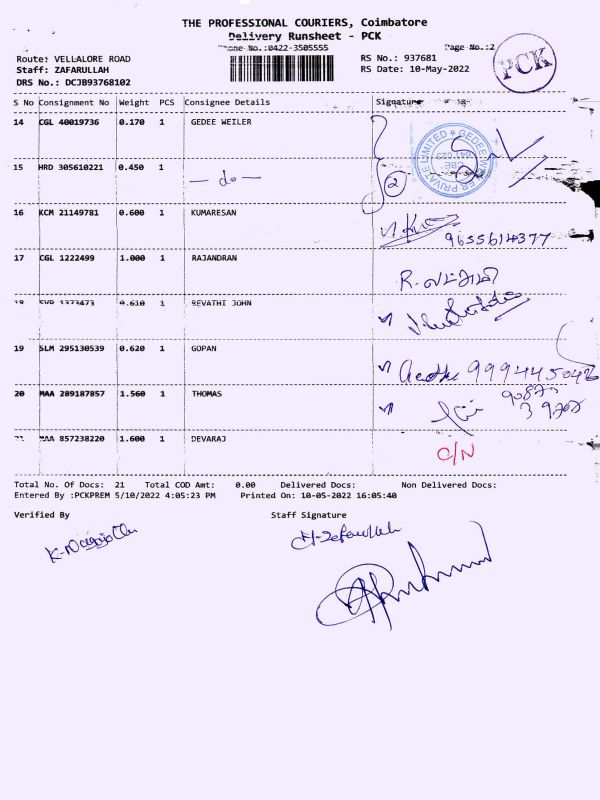 THE PROFESSIONAL COURIERS, Coimbatore
Delivery Runsheet - PCK
Phone No.:0422-3505555 Page No.:2
Route: VELLALORE ROAD RS No.: 937681
Staff: ZAFARULLAH RS Date: 10-May-2022
DRS No.: DCJB93768102
PCK
S No Consignment No Weight PCS Consignee Details Signature
14 CGL 40019736 0.170 1 GEDEE WEILER
15 HRD 305610221 0.450 1 — do — 2
16 KCM 21149781 0.600 1 KUMARESAN
9655614377
17 CGL 1222499 1.000 1 RAJANDRAN R.
18 SVP 1373473 0.610 1 REVATHI JOHN
19 SLM 295130539 0.620 1 GOPAN
20 MAA 289187857 1.560 1 THOMAS
21 MAA 857238220 1.600 1 DEVARAJ C/N
Total No. Of Docs: 21 Total COD Amt: 0.00 Delivered Docs: Non Delivered Docs:
Entered By :PCKPREM 5/10/2022 4:05:23 PM Printed On: 10-05-2022 16:05:40
Verified By Staff Signature